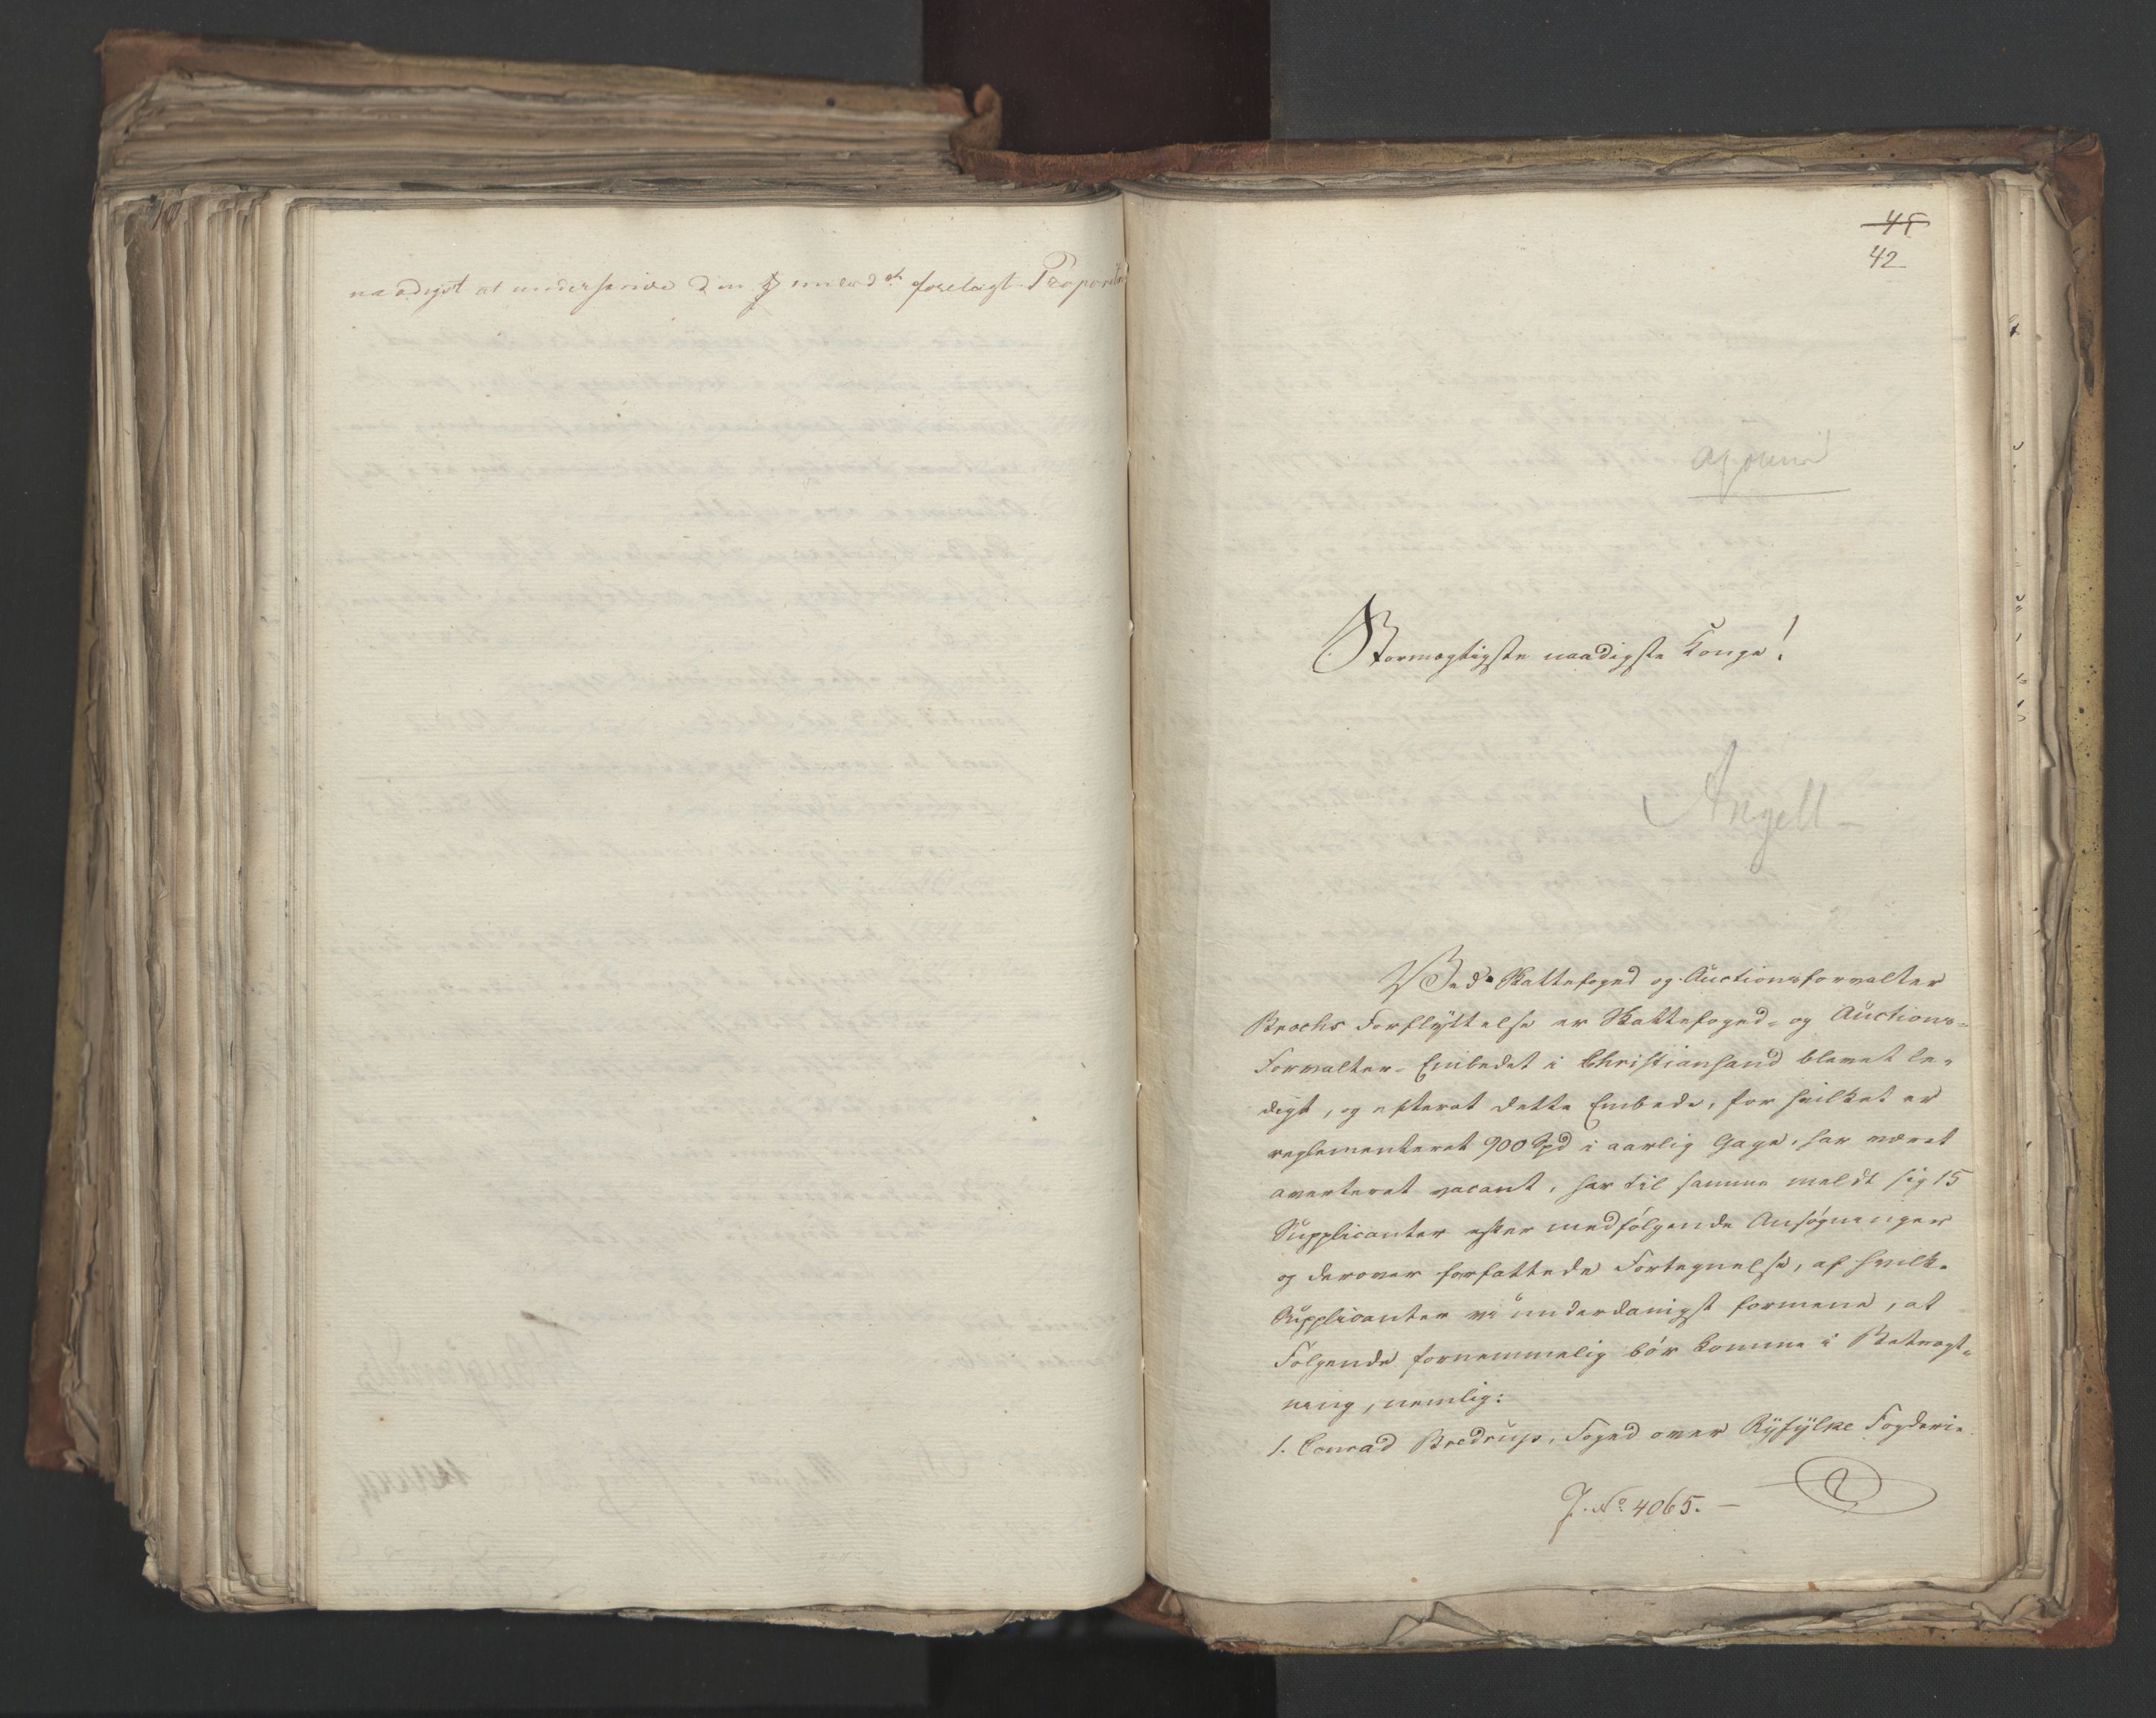 naadigst at underskrive den i underd.st forelagt Proposition
45
42
Stormægtigste naadigste Konge!
Angell
Ved Skattefoged og Auctionsforvalter
Brochs Forflyttelse er Skattefoged- og Auctions-
Forvalter-Embedet i Christiansand blevet le-
digt, og efterat dette Embede, for hvilket er
reglementeret 900 Spd i aarlig Gage, har været
averteret vacant, har til samme meldt sig 15
Supplicanter efter medfølgende Ansøgninger
og derover forfattede Fortegnelse, af hvilke
Supplicanter vi underdanigst formene, at
Følgende fornemmelig bör komme i Betragt-
ning, nemlig:
1. Conrad Bredrup, Foged over Ryfylke Fogderie
J. No 4065. —